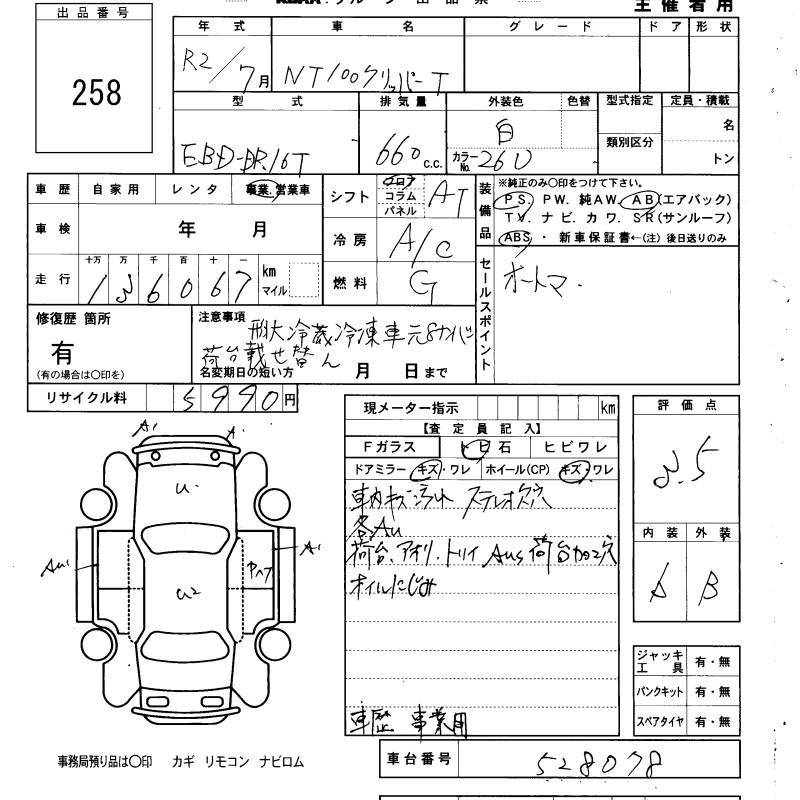 主催者用
出品番号
258
年式 車名 グレード ドア 形状
R2/7月 NT100クリッパーT
型式 排気量 外装色 色替 型式指定 定員・積載
EBD-DR16T 660c.c. 白 名
カラーNo. 26U 類別区分 トン
車歴 自家用 レンタ 事業・営業車
シフト フロア コラム パネル AT
装備品
※純正のみ〇印をつけて下さい。
PS. PW. 純AW. AB(エアバック)
TV. ナビ. カワ. SR(サンルーフ)
ABS ・ 新車保証書←(注) 後日送りのみ
車検 年 月
冷房 A/C
走行 十万 万 千 百 十 一
136067 km マイル
燃料 G
セールスポイント
オートマ.
修復歴 箇所
有
(有の場合は〇印を)
注意事項
荷台載せ替え
名変期日の短い方 月 日まで
リサイクル料 5990円
現メーター指示 km
【査定員記入】
Fガラス トビ石 ヒビワレ
ドアミラー キズ・ワレ ホイール(CP) キズ・ワレ
車内キズ汚れ ステレオ欠穴
各Au
荷台、アオリ、トリイ Aus 荷台加工穴
オイルにじみ
車歴 事業用
評価点
3.5
内装 外装
A B
ジャッキ工具 有・無
パンクキット 有・無
スペアタイヤ 有・無
A1 A1
U
AU1
A1
U2
事務局預り品は〇印 カギ リモコン ナビロム
車台番号 528078